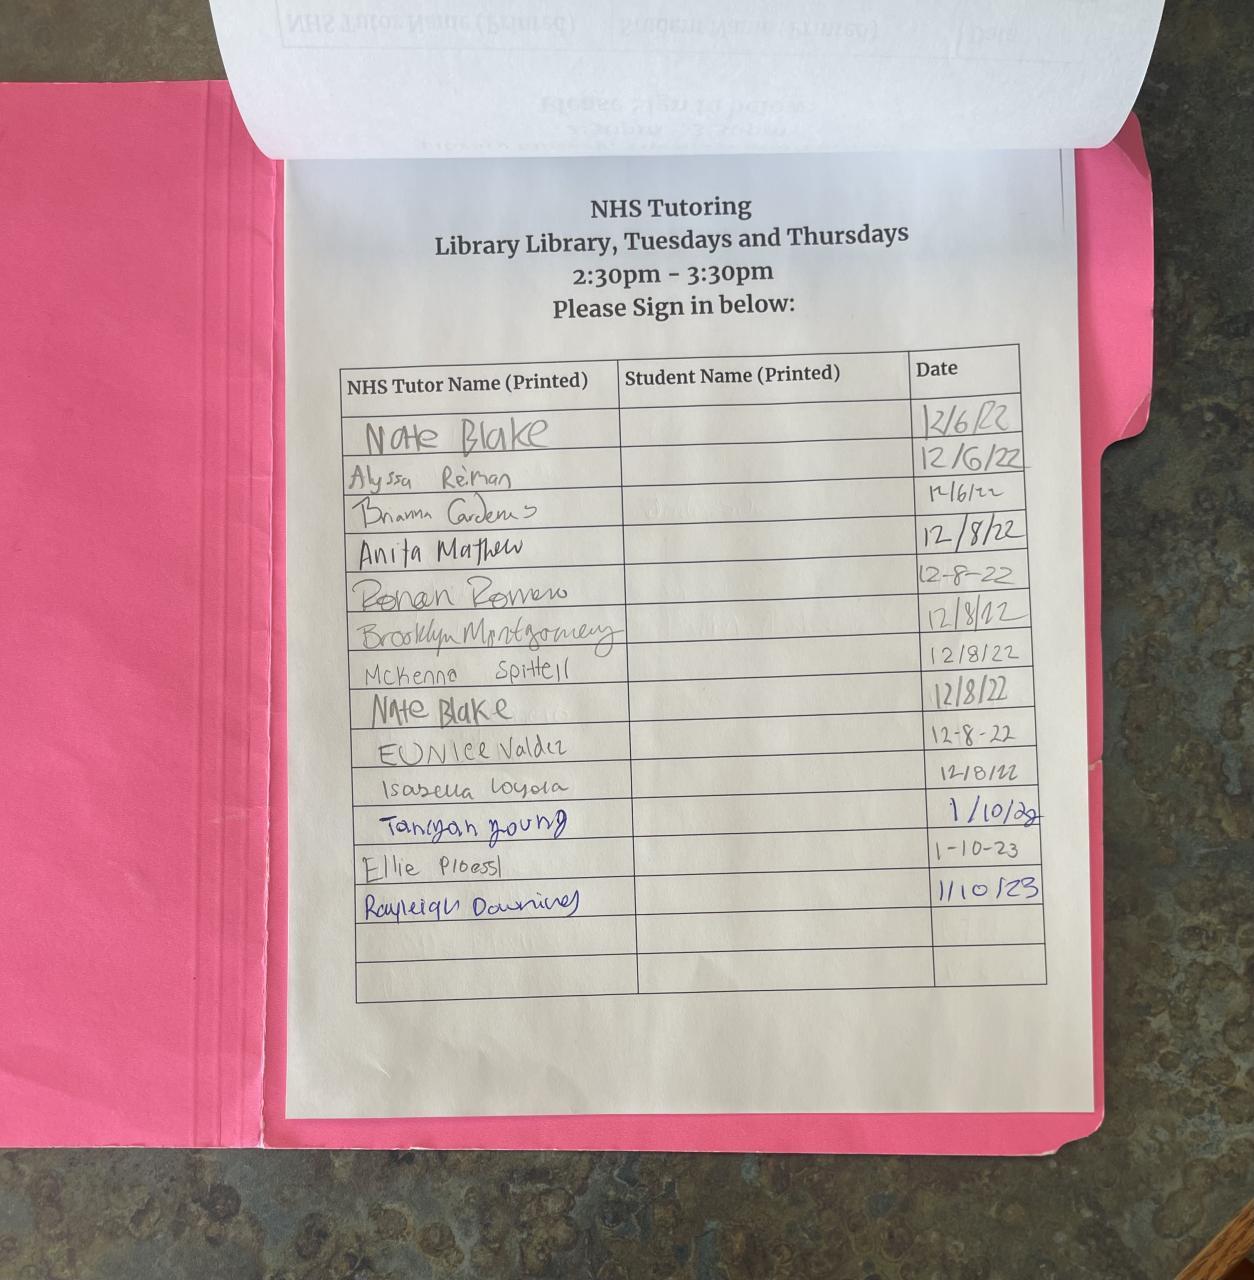 NHS Tutor Name (Printed) Student Name (Printed) Date
Please Sign in below:
2:30pm - 3:30pm
NHS Tutoring
Library Library, Tuesdays and Thursdays
2:30pm - 3:30pm
Please Sign in below:
NHS Tutor Name (Printed) Student Name (Printed) Date
Nate Blake 12/6/22
Alyssa Reiman 12/6/22
Brianna Cardenas 12/6/22
Anita Mathew 12/8/22
Ronan Romero 12-8-22
Brooklyn Montgomery 12/8/22
McKenna Spittell 12/8/22
Nate Blake 12/8/22
EUNICE Valdez 12-8-22
Isabella Loyola 12/8/22
young 1/10/23
Ellie Ploessl 1-10-23
Rayleigh Downing 1/10/23